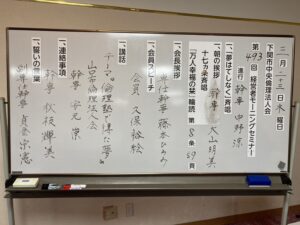 二月二十三日木曜日
下関市中央倫理法人会
第493回 経営者モーニングセミナー
進行 幹事 中野 涼
一、「夢はてしなく」斉唱
一、朝の挨拶 幹事 大山明美
十七ヵ条斉唱
「万人幸福の栞」輪読 第8条 59頁
一、会長挨拶
専任幹事 藤本ひろみ
一、会員スピーチ
会員 久保 敏絵
一、講話
テーマ「倫理塾で得た夢」
山口県倫理法人会
幹事 安元 崇
一、連絡事項
幹事 仮枝 輝美
一、誓いの言葉
副専任幹事 貞金 忠憲